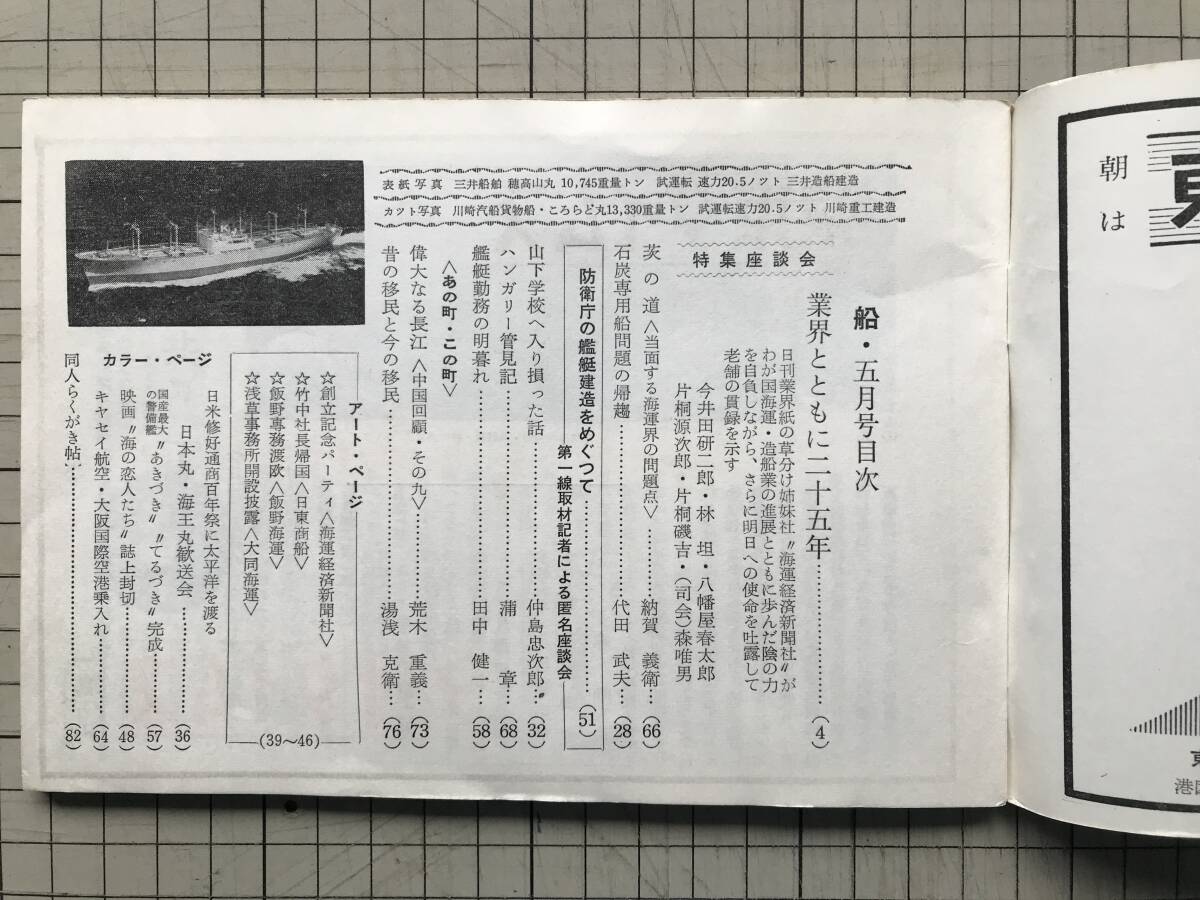 表紙写真　三井船舶 穂高山丸 10,745重量トン　試運転 速力20.5ノツト 三井造船建造
カツト写真　川崎汽船貨物船・ころらど丸13,330重量トン　試運転速力20.5ノツト 川崎重工建造
船・五月号目次
特集座談会
業界とともに二十五年………(4)
日刊業界紙の草分け姉妹社〝海運経済新聞社〟が
わが国海運・造船業の進展とともに歩んだ陰の力
を自負しながら、さらに明日への使命を吐露して
老舗の貫録を示す
今井田研二郎・林　坦・八幡屋春太郎
片桐源次郎・片桐磯吉・(司会)森唯男
茨の道〈当面する海運界の問題点〉………納賀　義衛…(66)
石炭専用船問題の帰趨………代田　武夫…(28)
防衛庁の艦艇建造をめぐつて………(51)
第一線取材記者による匿名座談会
山下学校へ入り損った話………仲島忠次郎…(32)
ハンガリー管見記………蒲　　章…(68)
艦艇勤務の明暮れ………田中　健一…(58)
〈あの町・この町〉
偉大なる長江〈中国回顧・その九〉………荒木　重義…(73)
昔の移民と今の移民………湯浅　克衛…(76)
アート・ページ
☆創立記念パーティ〈海運経済新聞社〉
☆竹中社長帰国〈日東商船〉
☆飯野専務渡欧〈飯野海運〉
☆浅草事務所開設披露〈大同海運〉
(39〜46)
カラー・ページ
日米修好通商百年祭に太平洋を渡る
日本丸・海王丸歓送会………(36)
国産最大の警備艦〝あきづき〟〝てるづき〟完成………(57)
映画〝海の恋人たち〟誌上封切………(48)
キャセイ航空・大阪国際空港乗入れ………(64)
同人らくがき帖………(82)
朝は
東
港